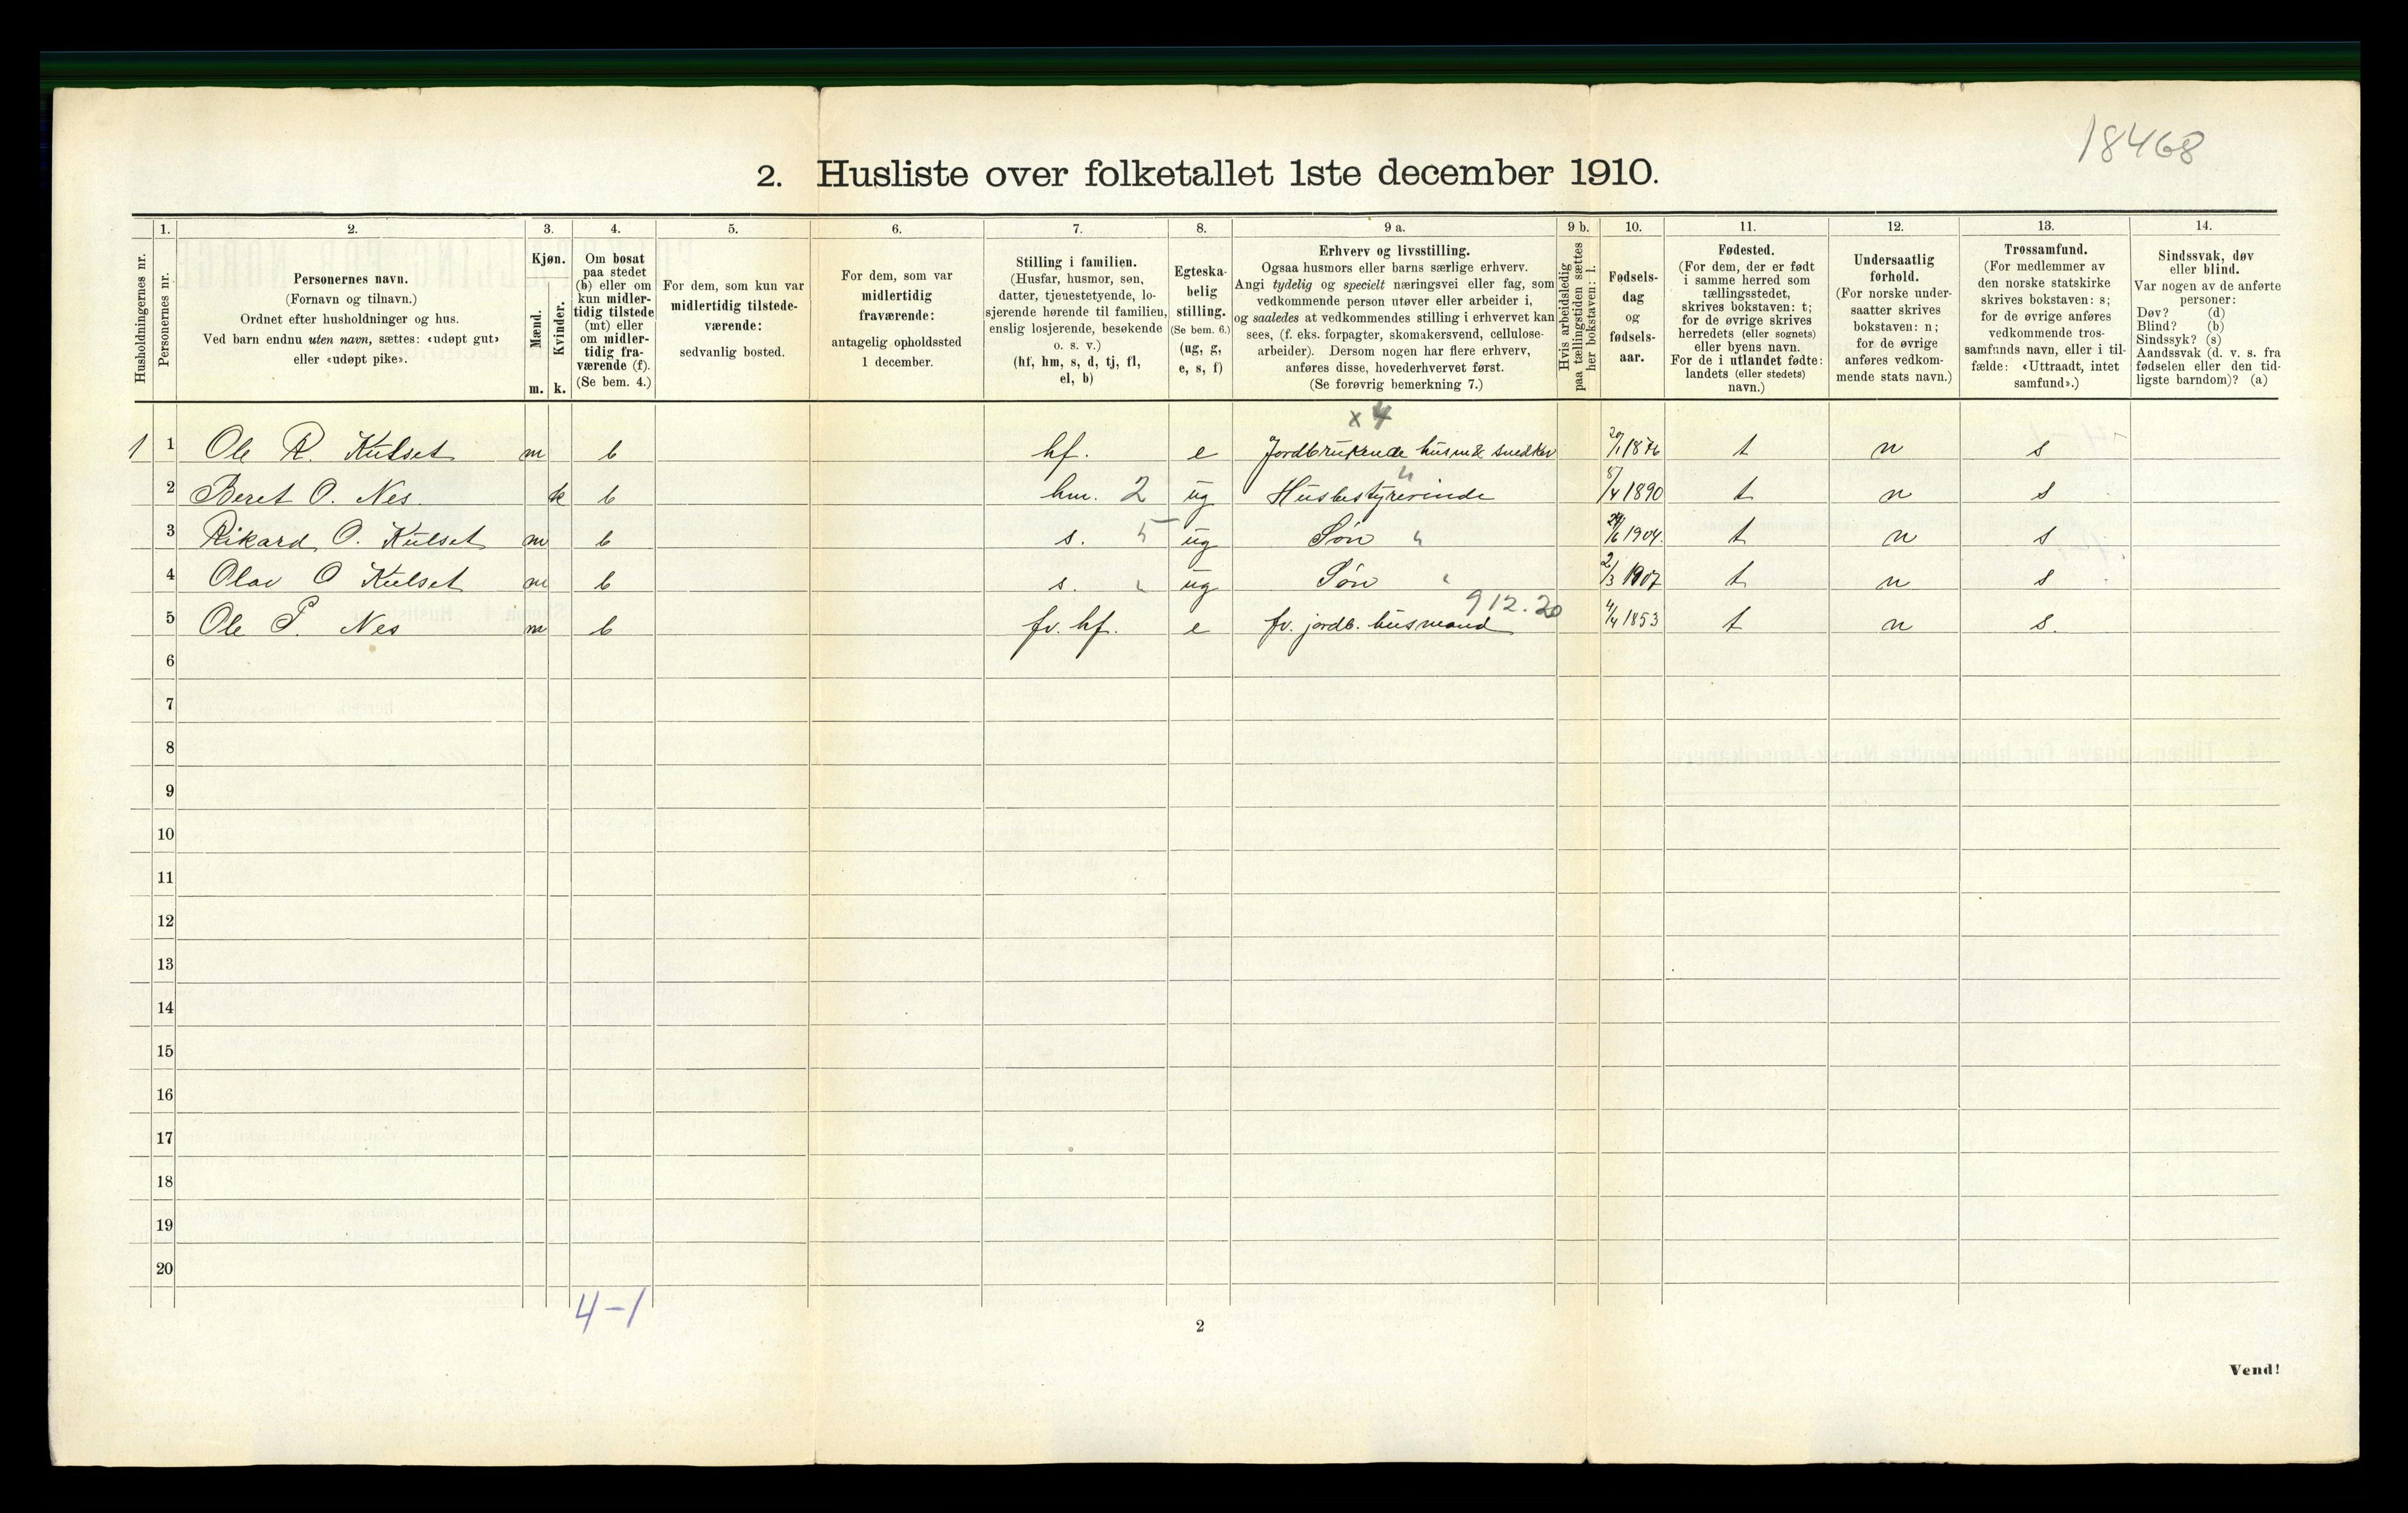 18468
2. Husliste over folketallet 1ste december 1910.
Husholdningernes nr.
1.
Personernes nr.
2.
Personernes navn.
(Fornavn og tilnavn.)
Ordnet efter husholdninger og hus.
Ved barn endnu uten navn, sættes: «udøpt gut»
eller «udøpt pike».
3.
Kjøn.
Mænd.
m.
Kvinder.
k.
4.
Om bosat
paa stedet
(b) eller om
kun midler-
tidig tilstede
(mt) eller
om midler-
tidig fra-
værende (f).
(Se bem. 4.)
5.
For dem, som kun var
midlertidig tilstede-
værende:
sedvanlig bosted.
6.
For dem, som var
midlertidig
fraværende:
antagelig opholdssted
1 december.
7.
Stilling i familien.
(Husfar, husmor, søn,
datter, tjenestetyende, lo-
sjerende hørende til familien,
enslig losjerende, besøkende
o. s. v.)
(hf, hm, s, d, tj, fl,
el, b)
8.
Egteska-
belig
stilling.
(Se bem. 6.)
(ug, g,
e, s, f)
9 a.
Erhverv og livsstilling.
Ogsaa husmors eller barns særlige erhverv.
Angi tydelig og specielt næringsvei eller fag, som
vedkommende person utøver eller arbeider i,
og saaledes at vedkommendes stilling i erhvervet kan
sees, (f. eks. forpagter, skomakersvend, cellulose-
arbeider). Dersom nogen har flere erhverv,
anføres disse, hovederhvervet først.
(Se forøvrig bemerkning 7.)
9 b.
Hvis arbeidsledig
paa tællingstiden sættes
her bokstaven: l.
10.
Fødsels-
dag
og
fødsels-
aar.
11.
Fødested.
(For dem, der er født
i samme herred som
tællingsstedet,
skrives bokstaven: t;
for de øvrige skrives
herredets (eller sognets)
eller byens navn.
For de i utlandet fødte:
landets (eller stedets)
navn.)
12.
Undersaatlig
forhold.
(For norske under-
saatter skrives
bokstaven: n;
for de øvrige
anføres vedkom-
mende stats navn.)
13.
Trossamfund.
(For medlemmer av
den norske statskirke
skrives bokstaven: s;
for de øvrige anføres
vedkommende tros-
samfunds navn, eller i til-
fælde: «Uttraadt, intet
samfund».)
14.
Sindssvak, døv
eller blind.
Var nogen av de anførte
personer:
Døv? (d)
Blind? (b)
Sindssyk? (s)
Aandssvak (d. v. s. fra
fødselen eller den tid-
ligste barndom)? (a)
x 4
1 1 Ole R. Kulset m b hf. e Jordbrukende husm & snedker 20/1 1876 t n s
2 Beret O. Nes. k b hm. 2 ug Husbestyrerinde " 8/4 1890 t n s
3 Rikard O. Kulset m b s. 5 ug Søn " 24/6 1904. t n s
4 Olav O Kulset m b s. " ug Søn " 2/3 1907 t n s
912.20
5 Ole P. Nes m b fv. hf. e fv. jordb. husmand 4/4 1853 t n s.
6
7
8
9
10
11
12
13
14
15
16
17
18
19
20
4-1
2
Vend!